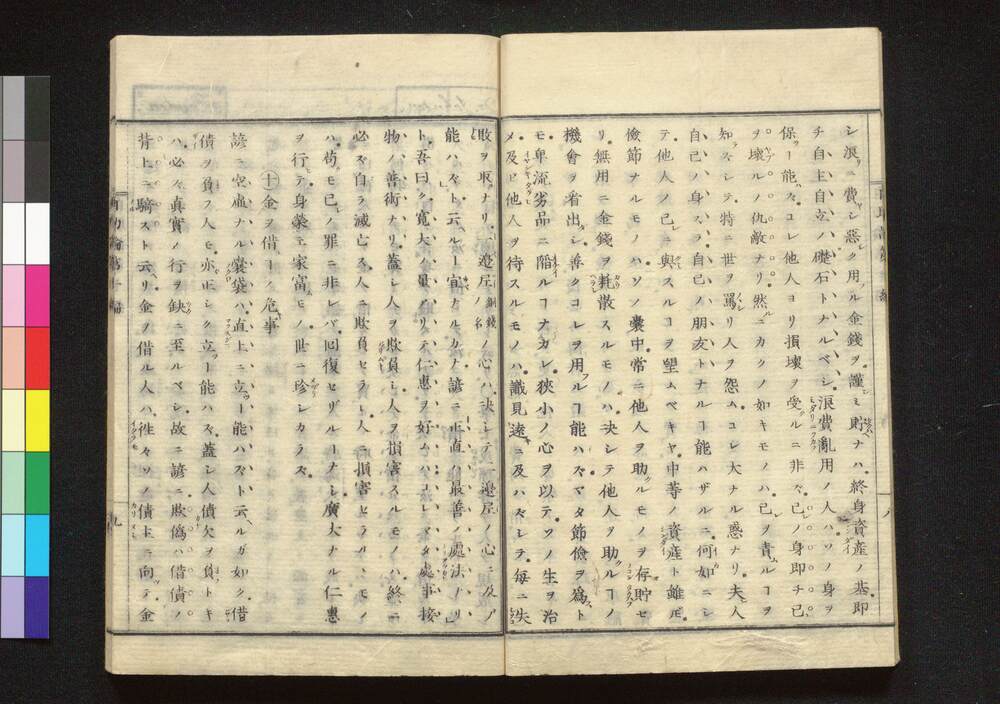 シ浪ニ費シ惡ク用ル金錢ヲ謹ミ貯ナハ終身資産ノ基即
チ自主自立ノ礎石トナルベシ浪費亂用ノ人ハソノ身ヲ
保ヿ能ハズコレ他人ヨリ損壞ヲ受ルニ非ズ己ノ身即チ己
ヲ壞ルノ仇敵ナリ然ニカクノ如キモノハ己ヲ責ルヿヲ
知ズシテ特ニ世ヲ罵リ人ヲ怨ムコレ大ナル惑ナリ夫人
自己ノ身スラ自己ノ朋友トナルヿ能ハザルニ何如ニシ
テ他人ノ己ニ與スルヿヲ望ムベキヤ中等ノ資産ト雖𪜈
儉節ナルモノハソノ嚢中常ニ他人ヲ助クルモノヲ存貯セ
リ無用ニ金錢ヲ耗散スルモノハ決シテ他人ヲ助クルヿノ
機會ヲ看出シ善クコレヲ用フルヿ能ハズマタ節儉ヲ爲ト
モ卑流劣品ニ陷ルヿナカレ狹小ノ心ヲ以テソノ生ヲ治
メ及ビ他人ヲ待スルモノハ識見遠ニ及ハズシテ毎ニ失
敗ヲ取ナリ邊尼銅錢ノ名ノ心ハ決シテ二邊尼ノ心ニ及ブ
能ハズト云ルヿ宜ナルカナ諺ニ正直ハ最善ノ處法ナリ
ト吾曰ク寛大ノ量アリテ仁惠ヲ好ムハコレマタ處事接
物ノ善術ナリ蓋シ人ヲ欺負シ人ヲ損害スルモノハ終ニ
必ズ自ラ滅亡ス人ニ欺負セラレ人ニ損害セラルヽモノ
ハ苟モ己ノ罪ニ非レバ回復セザルヿナシ廣大ナル仁惠
ヲ行テ身蒙エ家富モノ世ニ珍シカラズ
十 金ヲ借ヿノ危事
諺ニ空虛ナル嚢袋ハ直上ニ立ヿ能ハズト云ルガ如ク借
債ヲ負フ人モ亦正シク立ヿ能ハズ蓋シ人債欠ヲ負トキ
ハ必ズ眞實ノ行ヲ缺ニ至ルベシ故ニ諺ニ欺僞ハ借債ノ
背上ニ騎スト云リ金ノ借ル人ハ徃々ソノ債主ニ向テ金